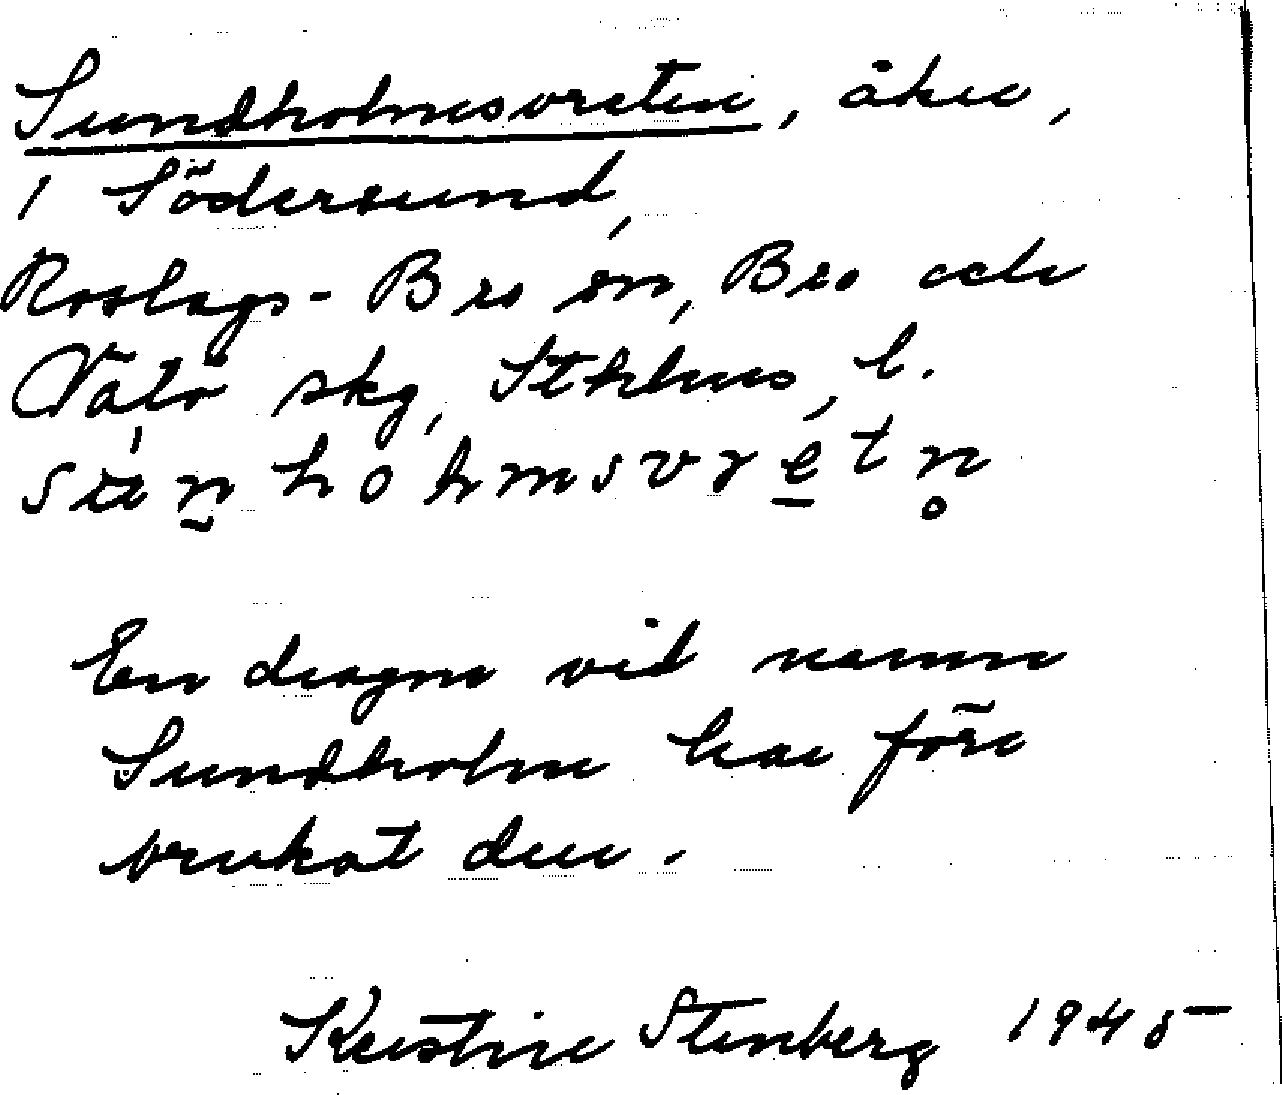 Sundholmsvreten, åker,
i Södersund,
Roslags-Bro sn, Bro och
Vätö skg, Sthlms l.
En dragon vid namn
Sundholm har förr
brukat den.
Kerstin Stenberg 1945